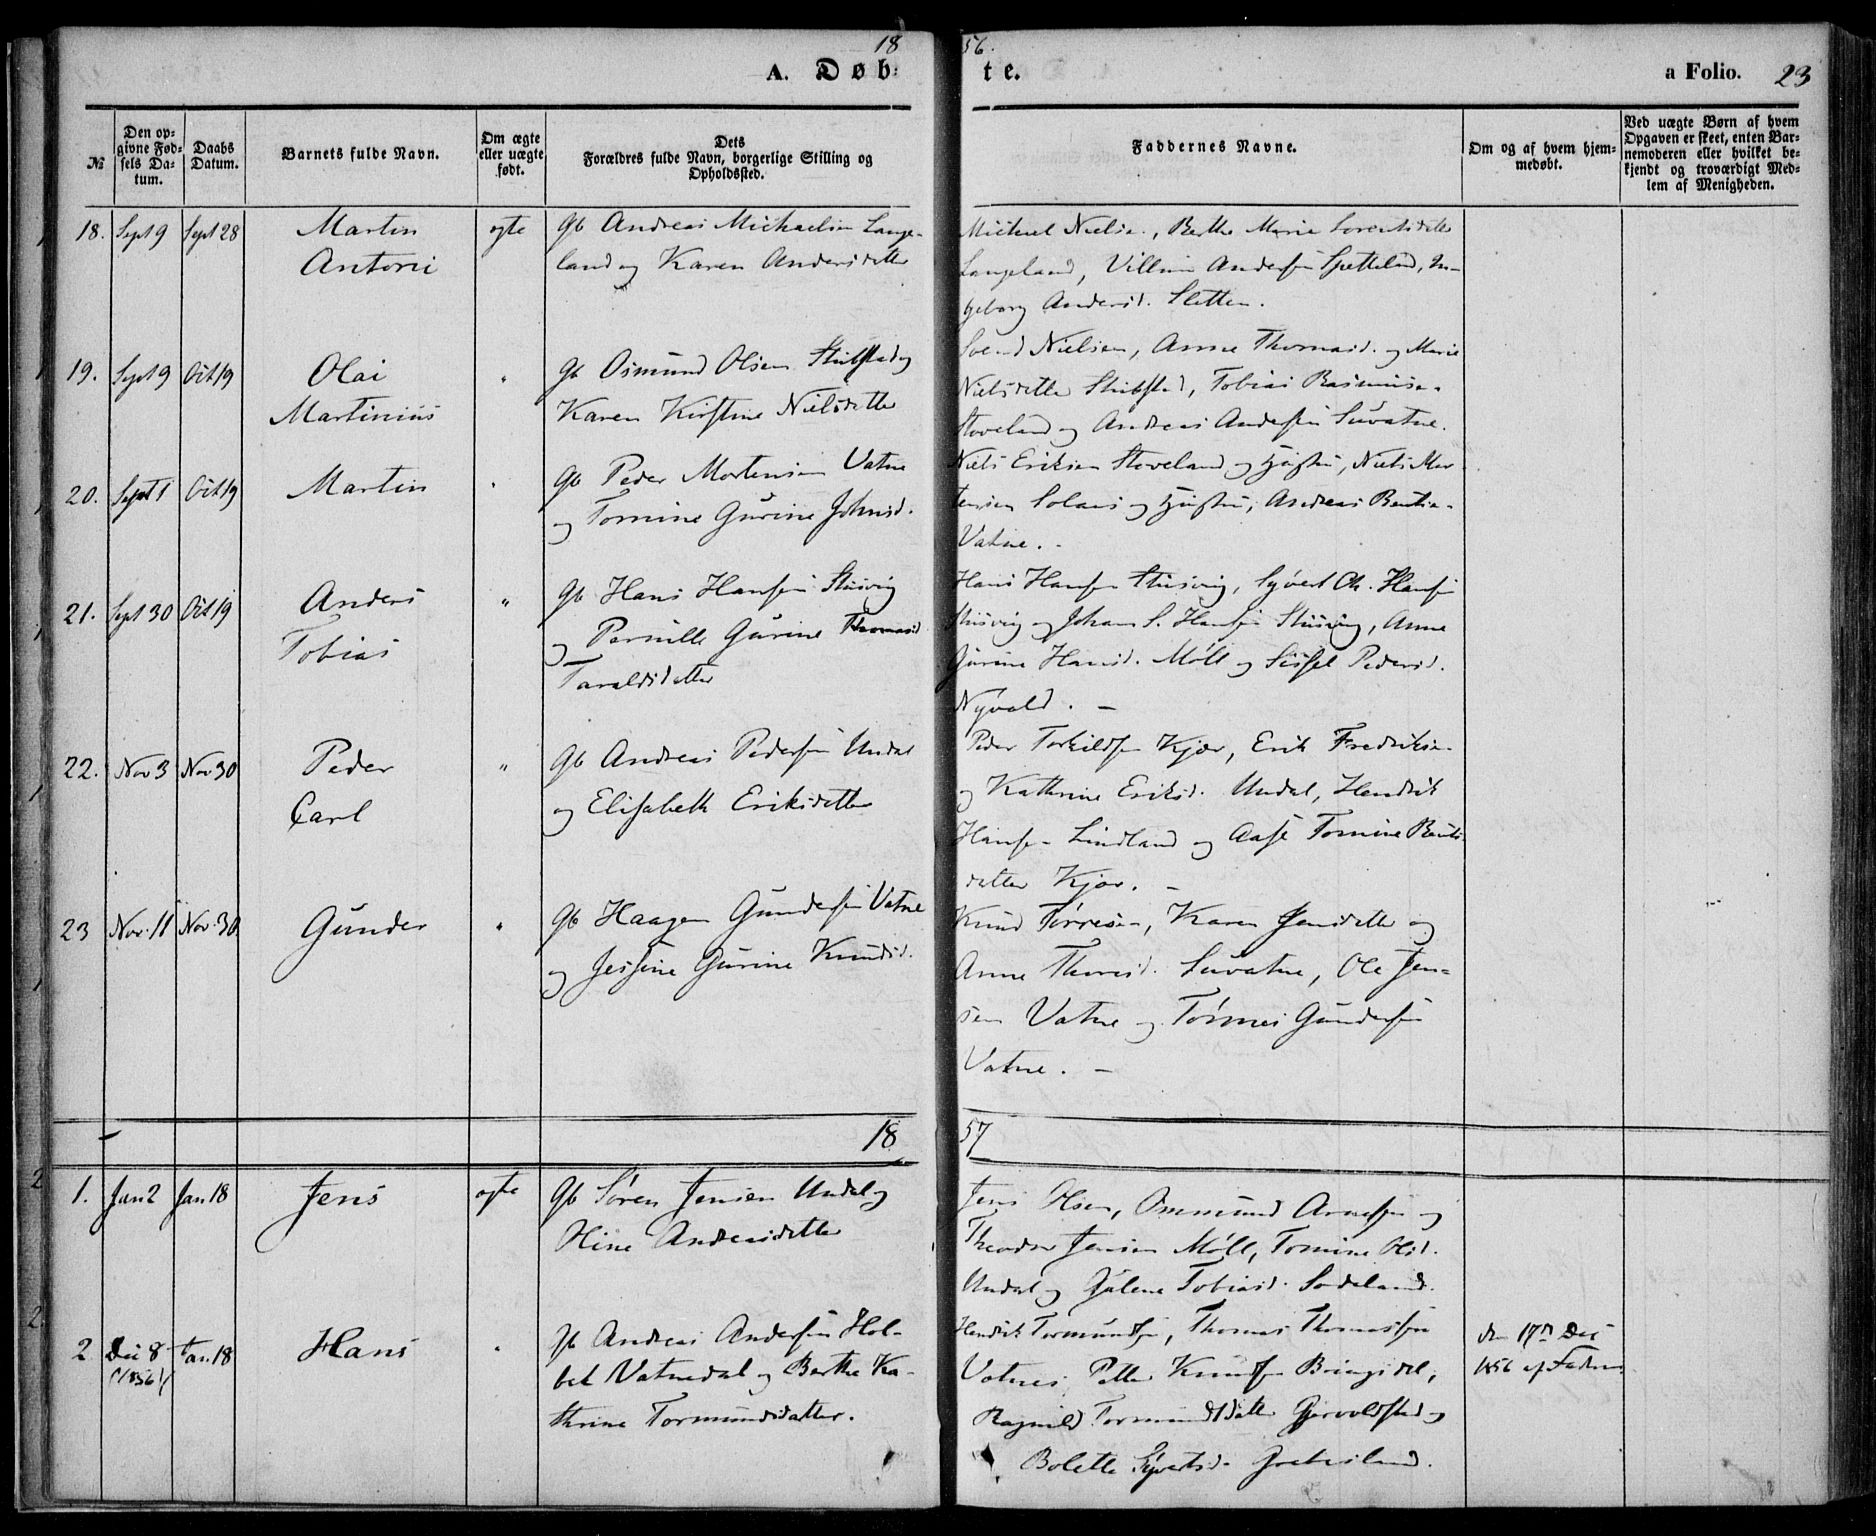 18
56.
A. Døb-
te.
a Folio. 23
№
Den op-
givne Fød-
sels Da-
tum.
Daabs
Datum.
Barnets fulde Navn.
Om ægte
eller uægte
født.
Dets
Forældres fulde Navn, borgerlige Stilling og
Opholdssted.
Faddernes Navne.
Om og af hvem hjem-
medøbt.
Ved uægte Børn af hvem
Opgaven er skeet, enten Bar-
nemoderen eller hvilket be-
kjendt og troværdigt Med-
lem af Menigheden.
18. Sept 9 Sept 28 Martin ægte Gb Andreas Michaelsen Lange-
Antoni land og Karen Andersdatter
Michael Nielsen, Berthe Marie Lorentsdatter
Langeland, Villum Andersen Spetteland, In-
geborg Andersd. Sletten.
19. Sept 9 Oct 19 Olai " Gb Osmund Olsen Stubstad og
Martinius Karen Kirstine Nielsdatter
Svend Nielsen, Anne Thomasd. og Marie
Nielsdatter Stubstad, Tobias Rasmusen
Stoveland og Andreas Andersen Suvatne.
20. Sept 1 Oct 19 Martin " Gb Peder Mortensen Vatne
og Tomine Gurine Johnsd.
Niels Eriksen Stoveland og Hustru, Niels Mor-
tensen Solaas og Hustru, Andreas Bentsen
Vatne. -
21. Sept 30 Oct 19 Anders " Gb Hans Hansen Stusvig
Tobias og Pernille Gurine
Taraldsdatter
Hans Hansen Stusvig, Syvert Ch. Hansen
Stusvig og Johan S. Hansen Stusvig, Anne
Gurine Hansd. Møll og Sissel Pedersd.
Nyvold. -
22. Nov 3 Nov 30 Peder " Gb Andreas Pedersen Undal
Carl og Elisabeth Eriksdatter
Peder Torkildsen Kjær, Erik Fredriksen
og Kathrine Eriksd. Undal, Hendrik
Hansen Lindland og Aase Tomine Bents-
datter Kjær. -
23 Nov. 11 Nov. 30 Gunder " Gb Haagen Gundersen Vatne
og Jessine Gurine Knudsd.
Knud Tørresen, Karen Jensdatter og
Anne Thoresd. Suvatne, Ole Jen-
sen Vatne og Tønnes Gundersen
Vatne. -
18
57
1. Jan 2 Jan. 18 Jens ægte Gb Søren Jensen Undal og
Stine Andreasdatter
Jens Olsen, Ommund Arnesen og
Theodor Jensen Møll, Tomine Olsd.
Undal og Gulene Tobiasd. Sodeland.
2 Dec 8 Jan. 18 Hans " Gb Andreas Andersen Hol-
(1856) bek Vatnedal og Berthe Ka-
thrine Tormundsdatter.
Hendrik Tormundsen, Thomas Thomassen
Vatnes, Peder Knudsen Bringsdal,
Ragnild Tormundsdatter Gjervoldstad og
Bolette Syvertsd. Grebesland.
den 17de Dec
1856 af Faderen